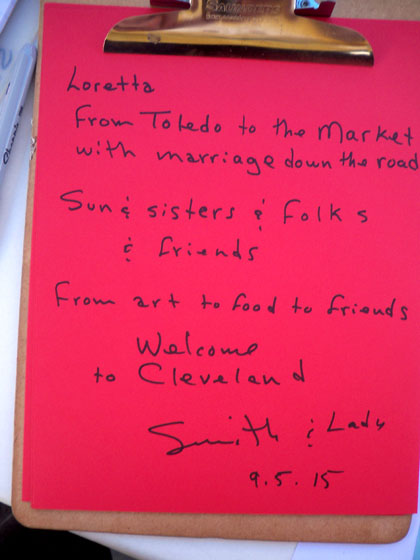 SAUNDERS
Loretta
From Toledo to the Market
with marriage down the road
Sun & sisters & folks
& friends
From art to food to friends
Welcome
to Cleveland
Smith & Lady
9.5.15